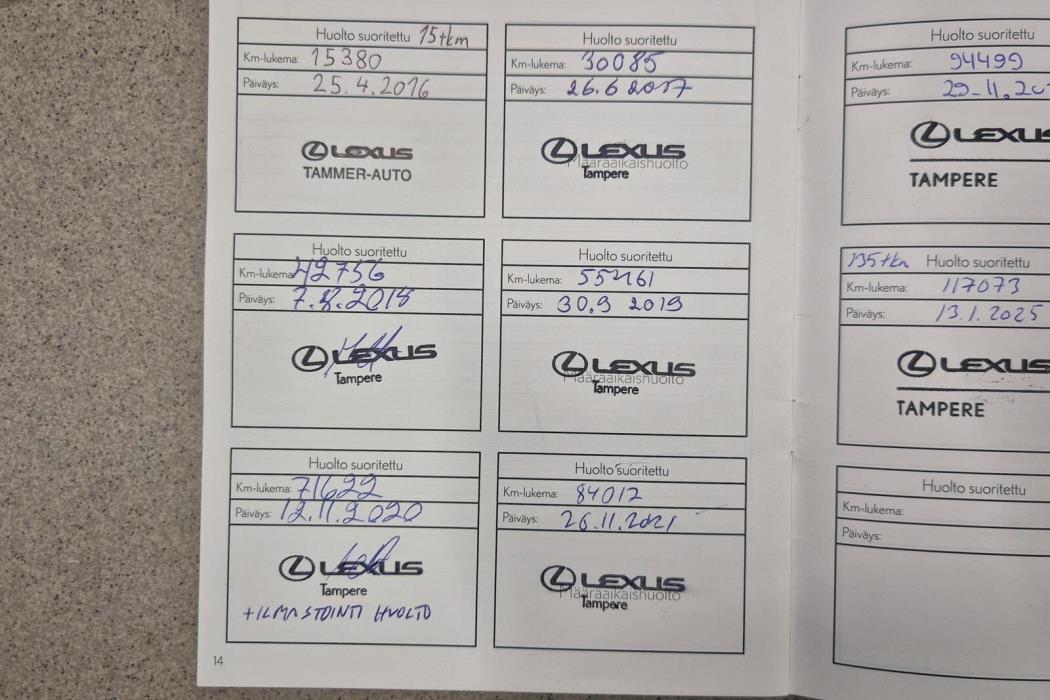 Huolto suoritettu 15tkm
Km-lukema: 15380
Päiväys: 25.4.2016
LEXUS
TAMMER-AUTO
Huolto suoritettu
Km-lukema: 30085
Päiväys: 26.6 2017
LEXUS
Määräaikaishuolto
Tampere
Huolto suoritettu
Km-lukema: 42756
Päiväys: 7.8.2018
LEXUS
Tampere
Huolto suoritettu
Km-lukema: 55461
Päiväys: 30.9 2019
LEXUS
Määräaikaishuolto
Tampere
Huolto suoritettu
Km-lukema: 71622
Päiväys: 12.11.2020
LEXUS
Tampere
+ILMASTOINTI HUOLTO
Huolto suoritettu
Km-lukema: 84012
Päiväys: 26.11.2021
LEXUS
Määräaikaishuolto
Tampere
14
Huolto suoritettu
Km-lukema: 94499
Päiväys: 29.11.20
LEXUS
TAMPERE
135tkm Huolto suoritettu
Km-lukema: 117073
Päiväys: 13.1.2025
LEXUS
TAMPERE
Huolto suoritettu
Km-lukema:
Päiväys: